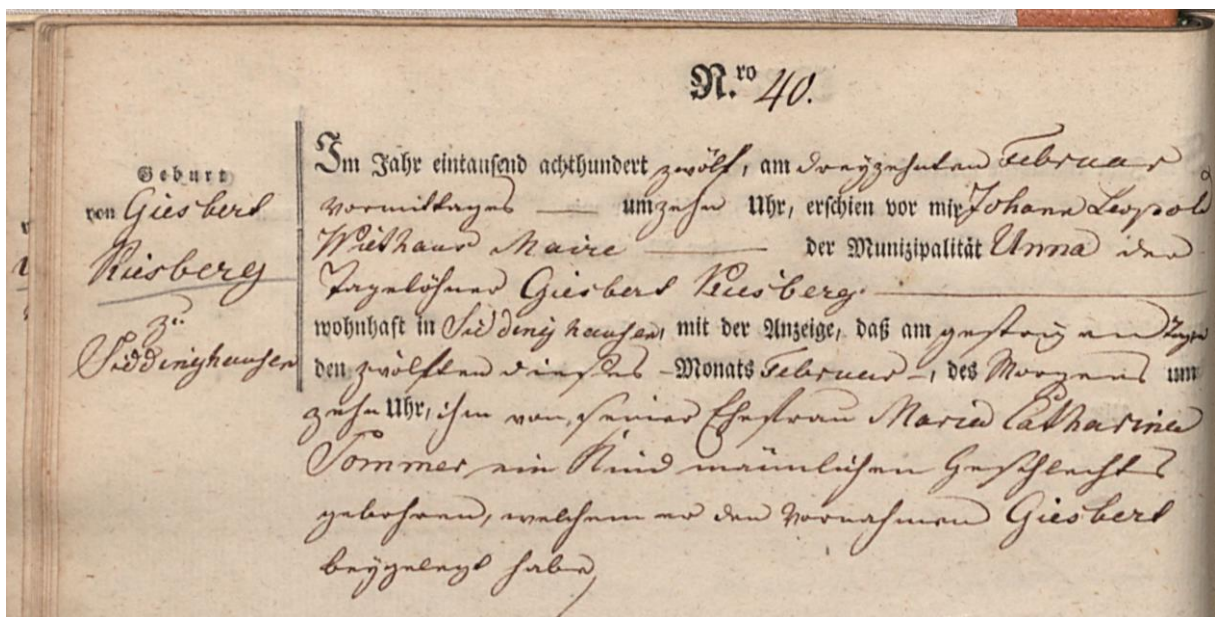 N.ro 40.
Geburt
von Giesbert
Riesberg
zu
Siddinghausen
Im Jahr eintausend achthundert zwölf, am dreyzehnten Februar
Vormittages — um zehn Uhr, erschien vor mir Johann Leopold
Wiethaus Maire — der Munizipalität Unna der
Tagelöhner Giesbert Riesberg. —
wohnhaft in Siddinghausen, mit der Anzeige, daß am gestrigen Tage
den zwölften dieses — Monats Februar —, des Morgens um
zehn Uhr, ihm von seiner Ehefrau Maria Catharina
Sommer ein Kind männlichen Geschlechts
gebohren, welchem er den Vornahmen Giesbert
beygelegt habe,